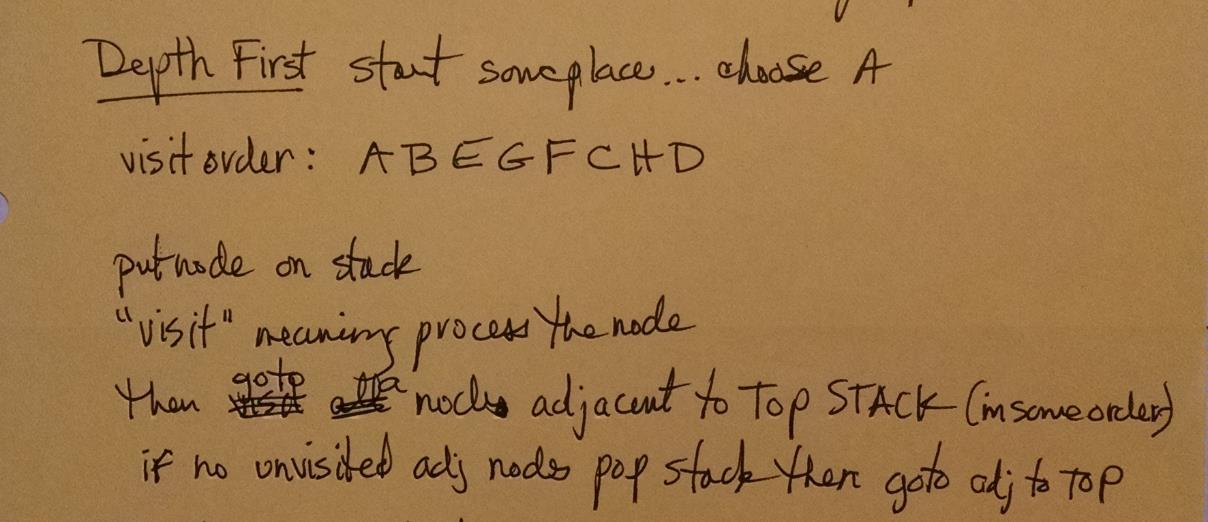 Depth First start someplace... choose A
visit order: A B E G F C H D
put node on stack
"visit" meaning process the node
then goto a node adjacent to TOP STACK (in some order)
if no unvisited adj nodes pop stack then goto adj to TOP